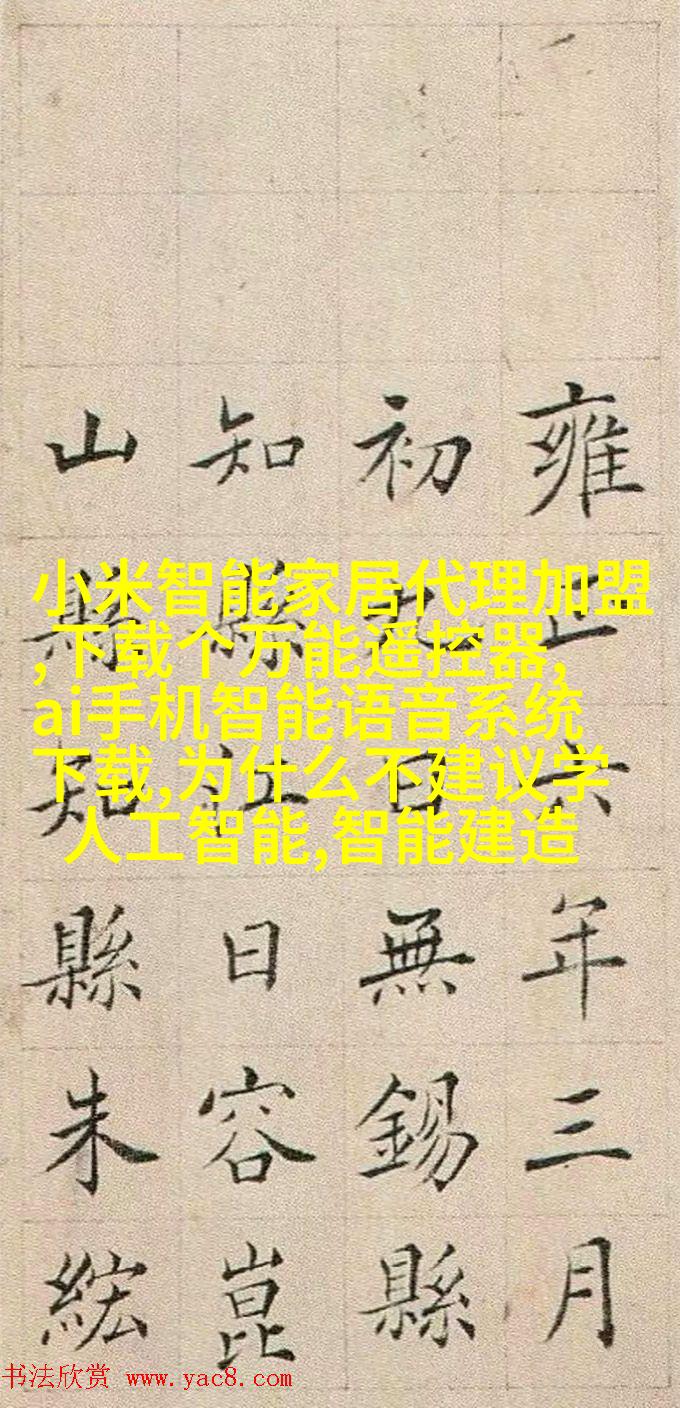 雍正六年三月
初九日無錫縣
知縣江日容崑
山縣知縣朱紘
小米智能家居代理加盟
,下载个万能遥控器,
ai手机智能语音系统
下载,为什么不建议学
人工智能,智能建造
书法欣赏 www.yac8.com